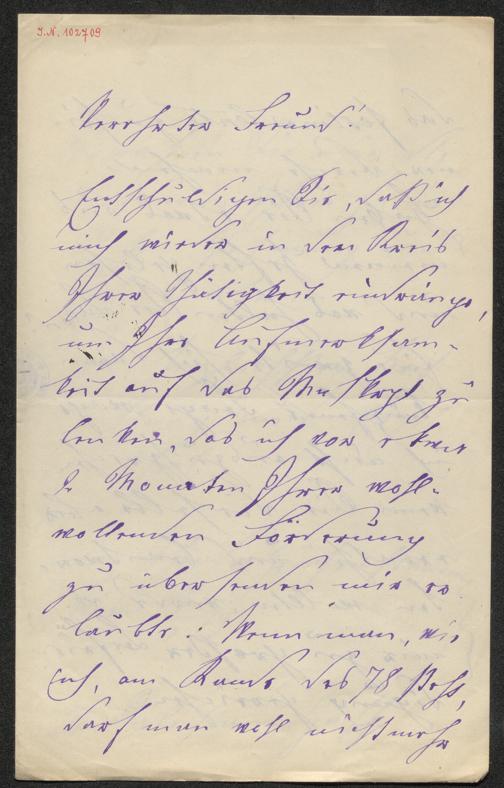 I.N. 102709
Verehrter Freund!
Entschuldigen Sie, daß ich
mich wieder in den Kreis
Ihrer Thätigkeit eindränge,
um Ihre Aufmerksam-
keit auf das Mskrpt zu
lenken, das ich vor etwa
2 Monaten Ihrer wohl-
wollenden Förderung
zu übersenden mir er
laubte. Wenn man, wie
ich, am Rande des 78 steht,
darf man wohl nicht mehr